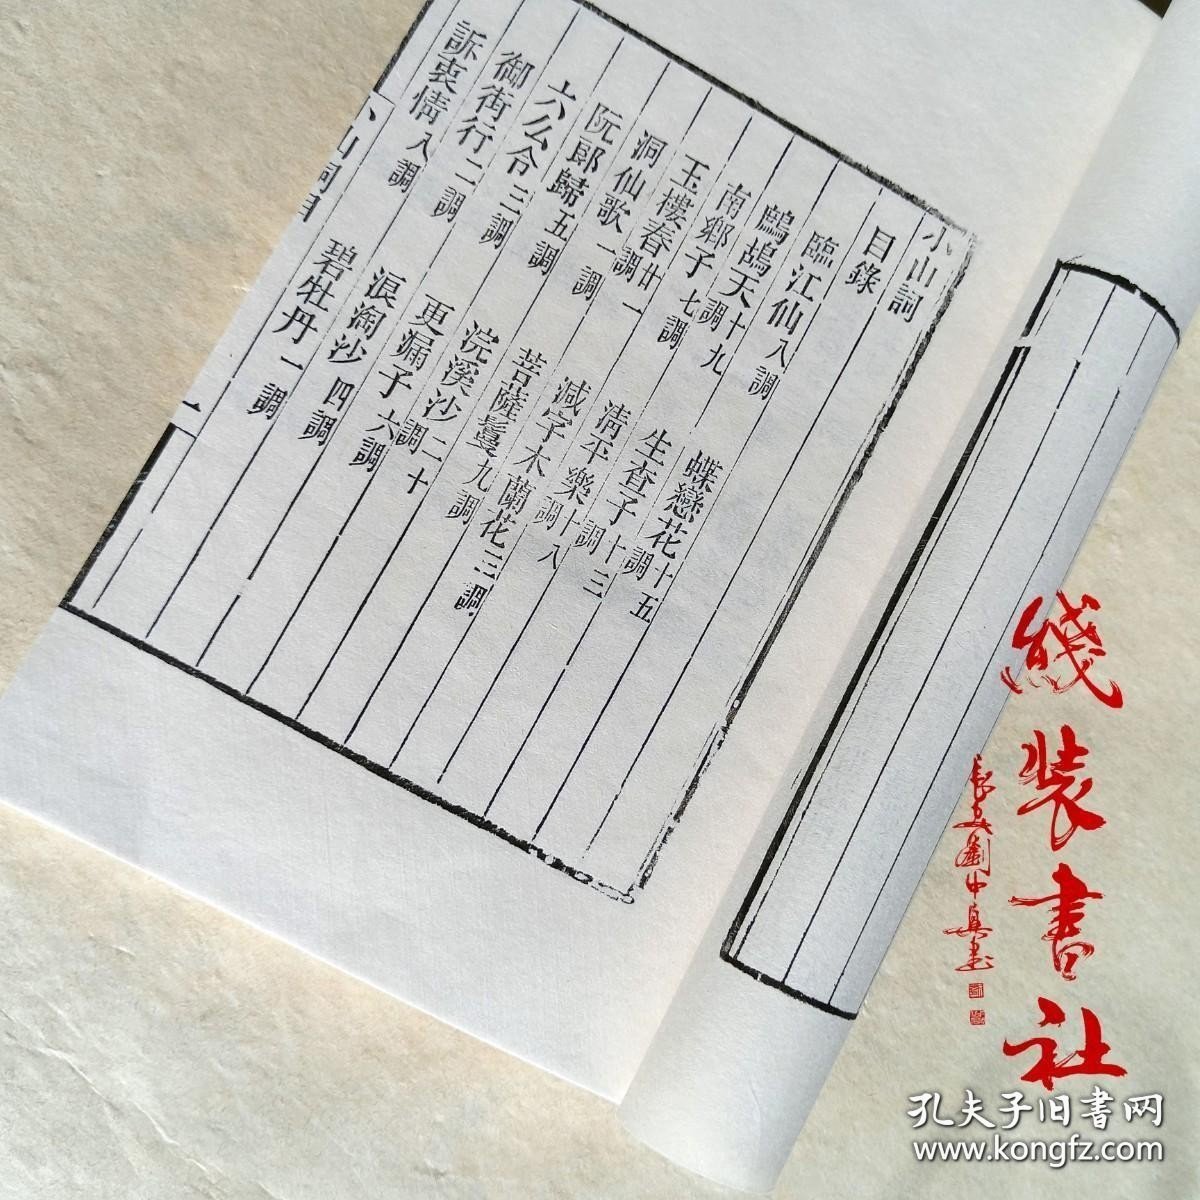 小山詞
目錄
臨江仙八調 蝶戀花十五調
鷓鴣天十九調 生查子十三調
南鄉子七調 清平樂十八調
玉樓春廿一調 減字木蘭花三調
洞仙歌一調 菩薩鬘九調
阮郎歸五調 浣溪沙二十調
六么令三調 更漏子六調
御街行二調 浪淘沙四調
訴衷情八調 碧牡丹一調
小山詞目 一
綫装書社
孔夫子旧書网
www.kongfz.com